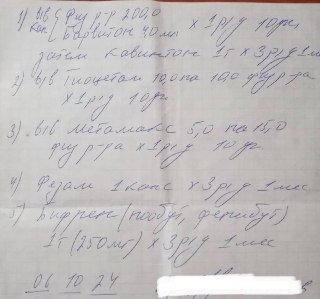 1) в/в кап { физ р-р 200,0
Барвитон 40 мл х 1 р/д 10 дн
затем кавинтон 1т х 3 р/д 1 мес
2) в/в Тиоцетам 10,0 на 10,0 физ р-ра
х 1 р/д 10 дн
3) в/в Метамакс 5,0 на 15,0
физ р-ра х 1 р/д 10 дн
4) Фезам 1 капс х 3 р/д 1 мес
5) Бифрен (нообут, фенибут)
1т (250мг) х 3 р/д 1 мес
06 10 24